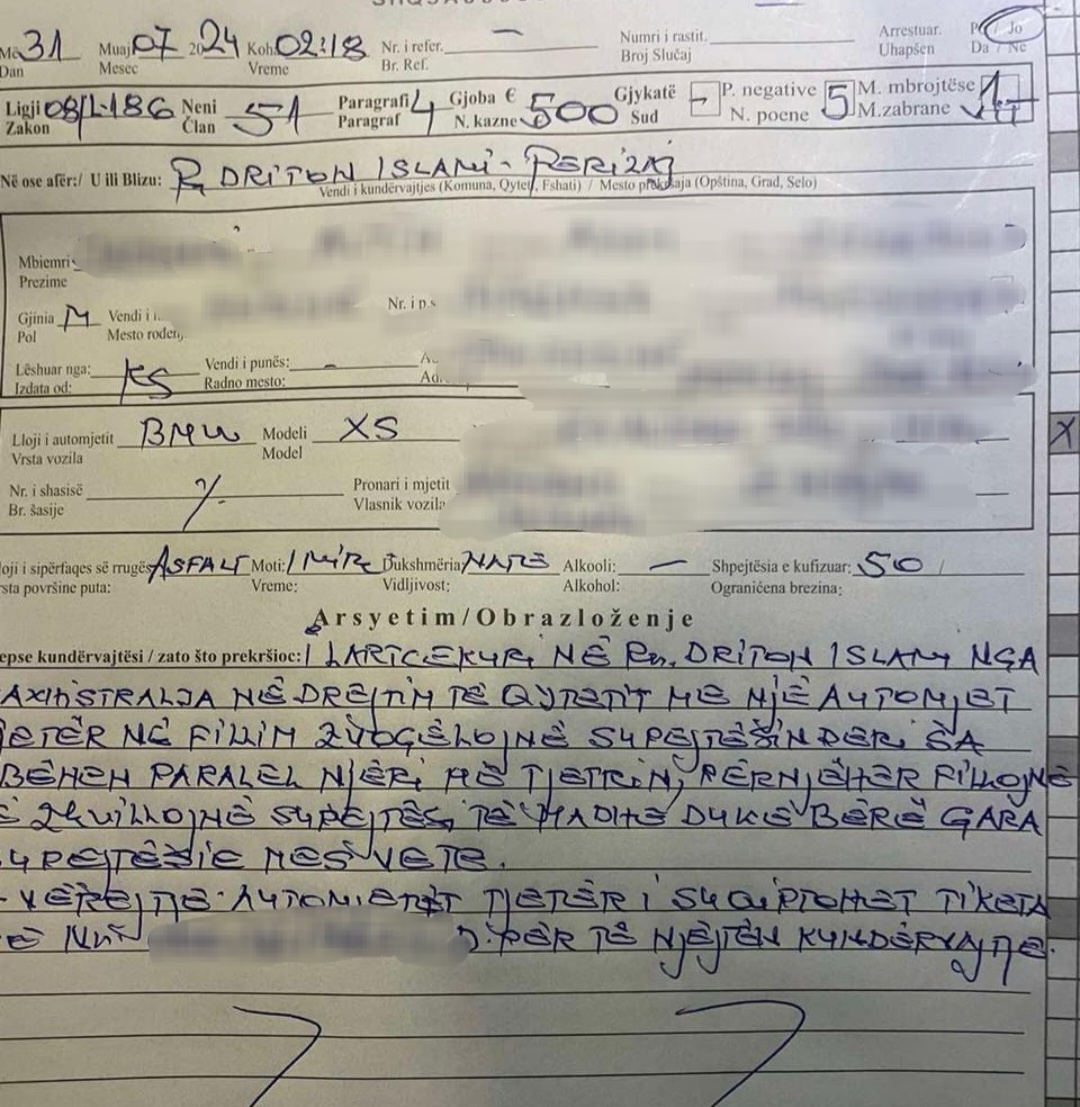 Më 31 Muaj 07 2024 Koh. 02:18 Nr. i refer. — Numri i rastit. Arrestuar. Po / Jo
Dan Mesec Vreme Br. Ref. Broj Slučaj Uhapšen Da / Ne
Ligji 08/L-186 Neni 51 Paragrafi 4 Gjoba € 500 Gjykatë - P. negative 5 M. mbrojtëse
Zakon Član Paragraf N. kazne Sud N. poene M.zabrane
Në ose afër:/ U ili Blizu: R DRITON ISLAMI - FERIZAJ
Vendi i kundërvajtjes (Komuna, Qytet, Fshati) / Mesto prekršaja (Opština, Grad, Selo)
Mbiemri
Prezime
Gjinia M Vendi i Nr. i p.s
Pol Mesto rođenj
Lëshuar nga: KS Vendi i punës: - A
Izdata od: Radno mesto: Ad
Lloji i automjetit BMW Modeli X5
X
Vrsta vozila Model
Nr. i shasisë Pronari i mjetit
Br. šasije Vlasnik vozila
loji i sipërfaqes së rrugës ASFALT Moti: I MIRË Dukshmëria NATË Alkooli: — Shpejtësia e kufizuar: 50
rsta površine puta: Vreme: Vidljivost: Alkohol: Ograničena brzina:
Arsyetim/Obrazloženje
epse kundërvajtësi / zato što prekršioc: I LARTCEKUR, NË Rr. DRITON ISLAMI NGA
MAGJISTRALJA NË DREJTIM TË QYTETIT ME NJË AUTOMJET
JETËR NË FILLIM ZVOGËLOJNË SHPEJTËSIN DERI SA
BËHEN PARALEL NJËRI ME TJETRIN, PËRNJËHER FILLOJNË
Ë ZHVILLOJNË SHPEJTËSI TË MADHE DUKË BËRË GARA
HPEJTËSIE MES VETE.
- VËREJTJE - AUTOMJETIT TJETËR I SHQIPTOHET TIKETA
ME NUM PËR TË NJEJTËN KUNDËRVAJTJE.